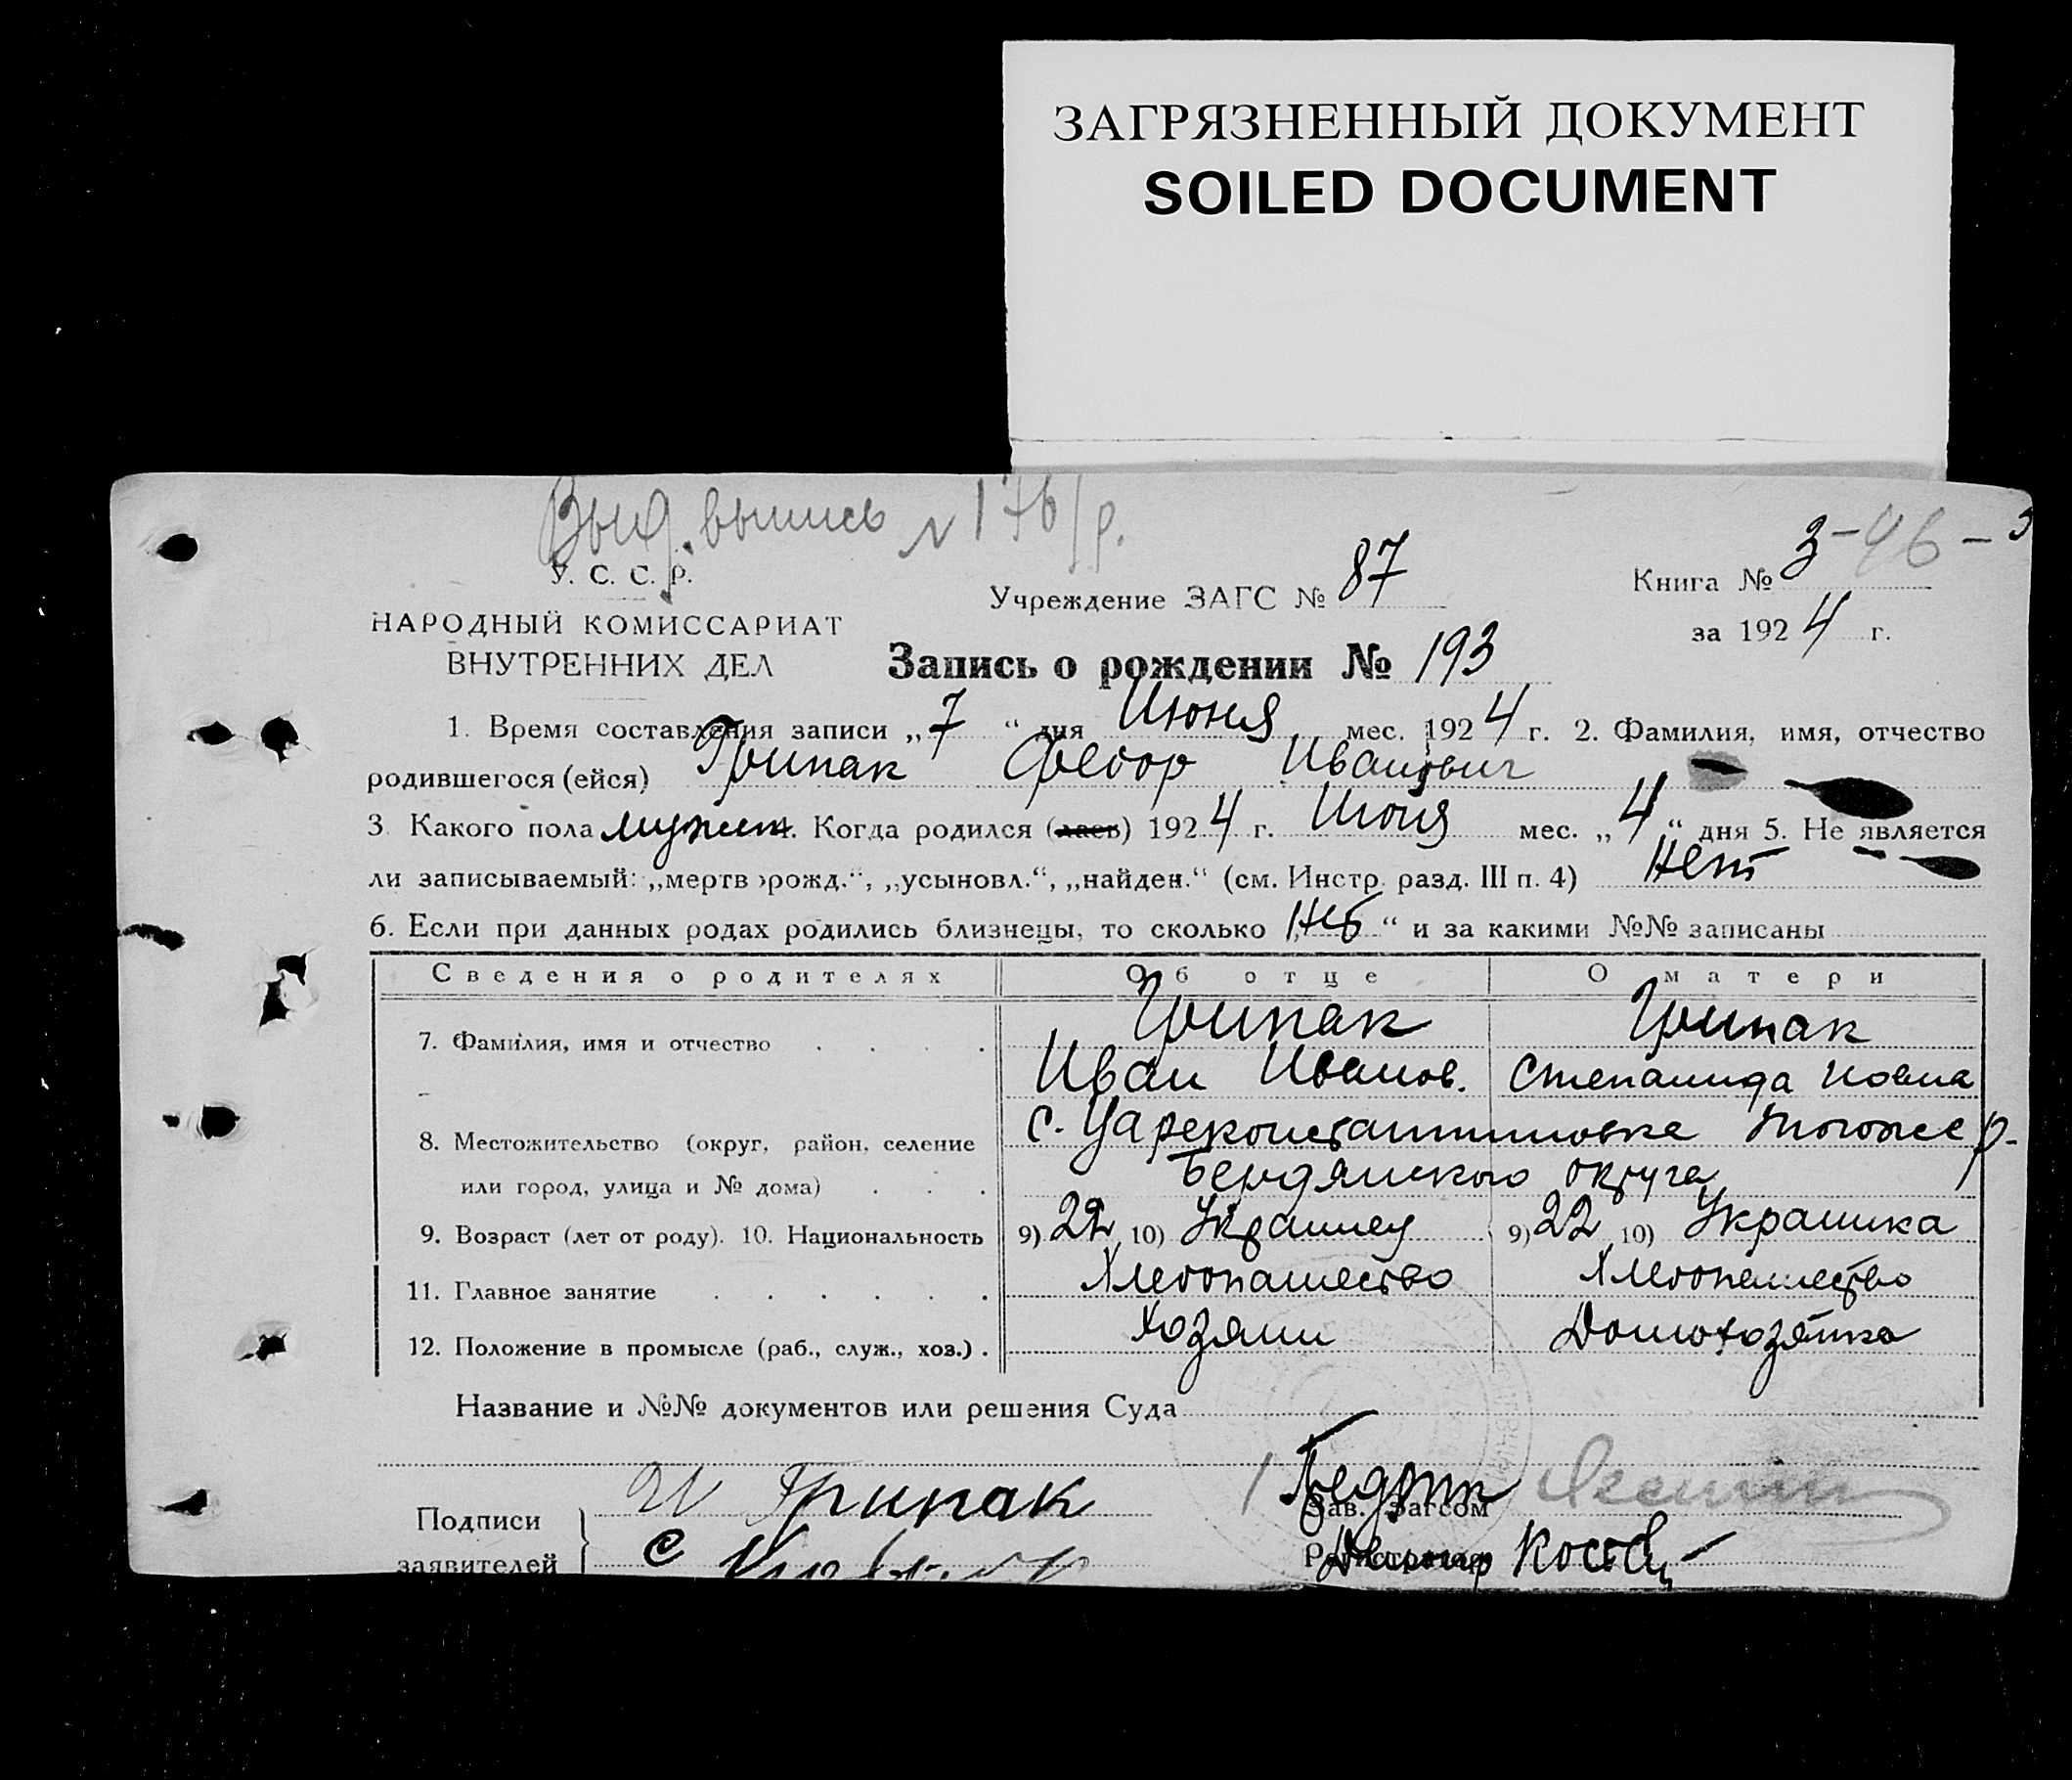 ЗАГРЯЗНЕННЫЙ ДОКУМЕНТ
SOILED DOCUMENT
Выд. выпись № 176/р.
У. С. С. Р.
НАРОДНЫЙ КОМИССАРИАТ
ВНУТРЕННИХ ДЕЛ
Учреждение ЗАГС № 87
Книга № 3-46-3
за 1924 г.
Запись о рождении № 193
1. Время составления записи „7“ дня Июня мес. 1924 г. 2. Фамилия, имя, отчество
родившегося (ейся) Грипак Федор Иванович
3 Какого пола мужск. Когда родился (лась) 1924 г. Июня мес. „4“ дня 5. Не является
ли записываемый: „мертворожд.“, „усыновл.“, „найден.“ (см. Инстр. разд. III п. 4) Нет
6. Если при данных родах родились близнецы, то сколько „Нет“ и за какими №№ записаны
Сведения о родителях Об отце О матери
7. Фамилия, имя и отчество Грипак Грипак
Иван Иванов. Степанида
8. Местожительство (округ, район, селение с. Цареконстантиновке Тогоже р.
или город, улица и № дома) Бердянского округа
9. Возраст (лет от роду). 10. Национальность 9) 22 10) Украинец 9) 22 10) Украинка
11. Главное занятие Хлебопашество Хлебопашество
12. Положение в промысле (раб., служ., хоз.) Хозяин Домохозяйка
Название и №№ документов или решения Суда
Подписи И Грипак Зав. Загсом
заявителей С